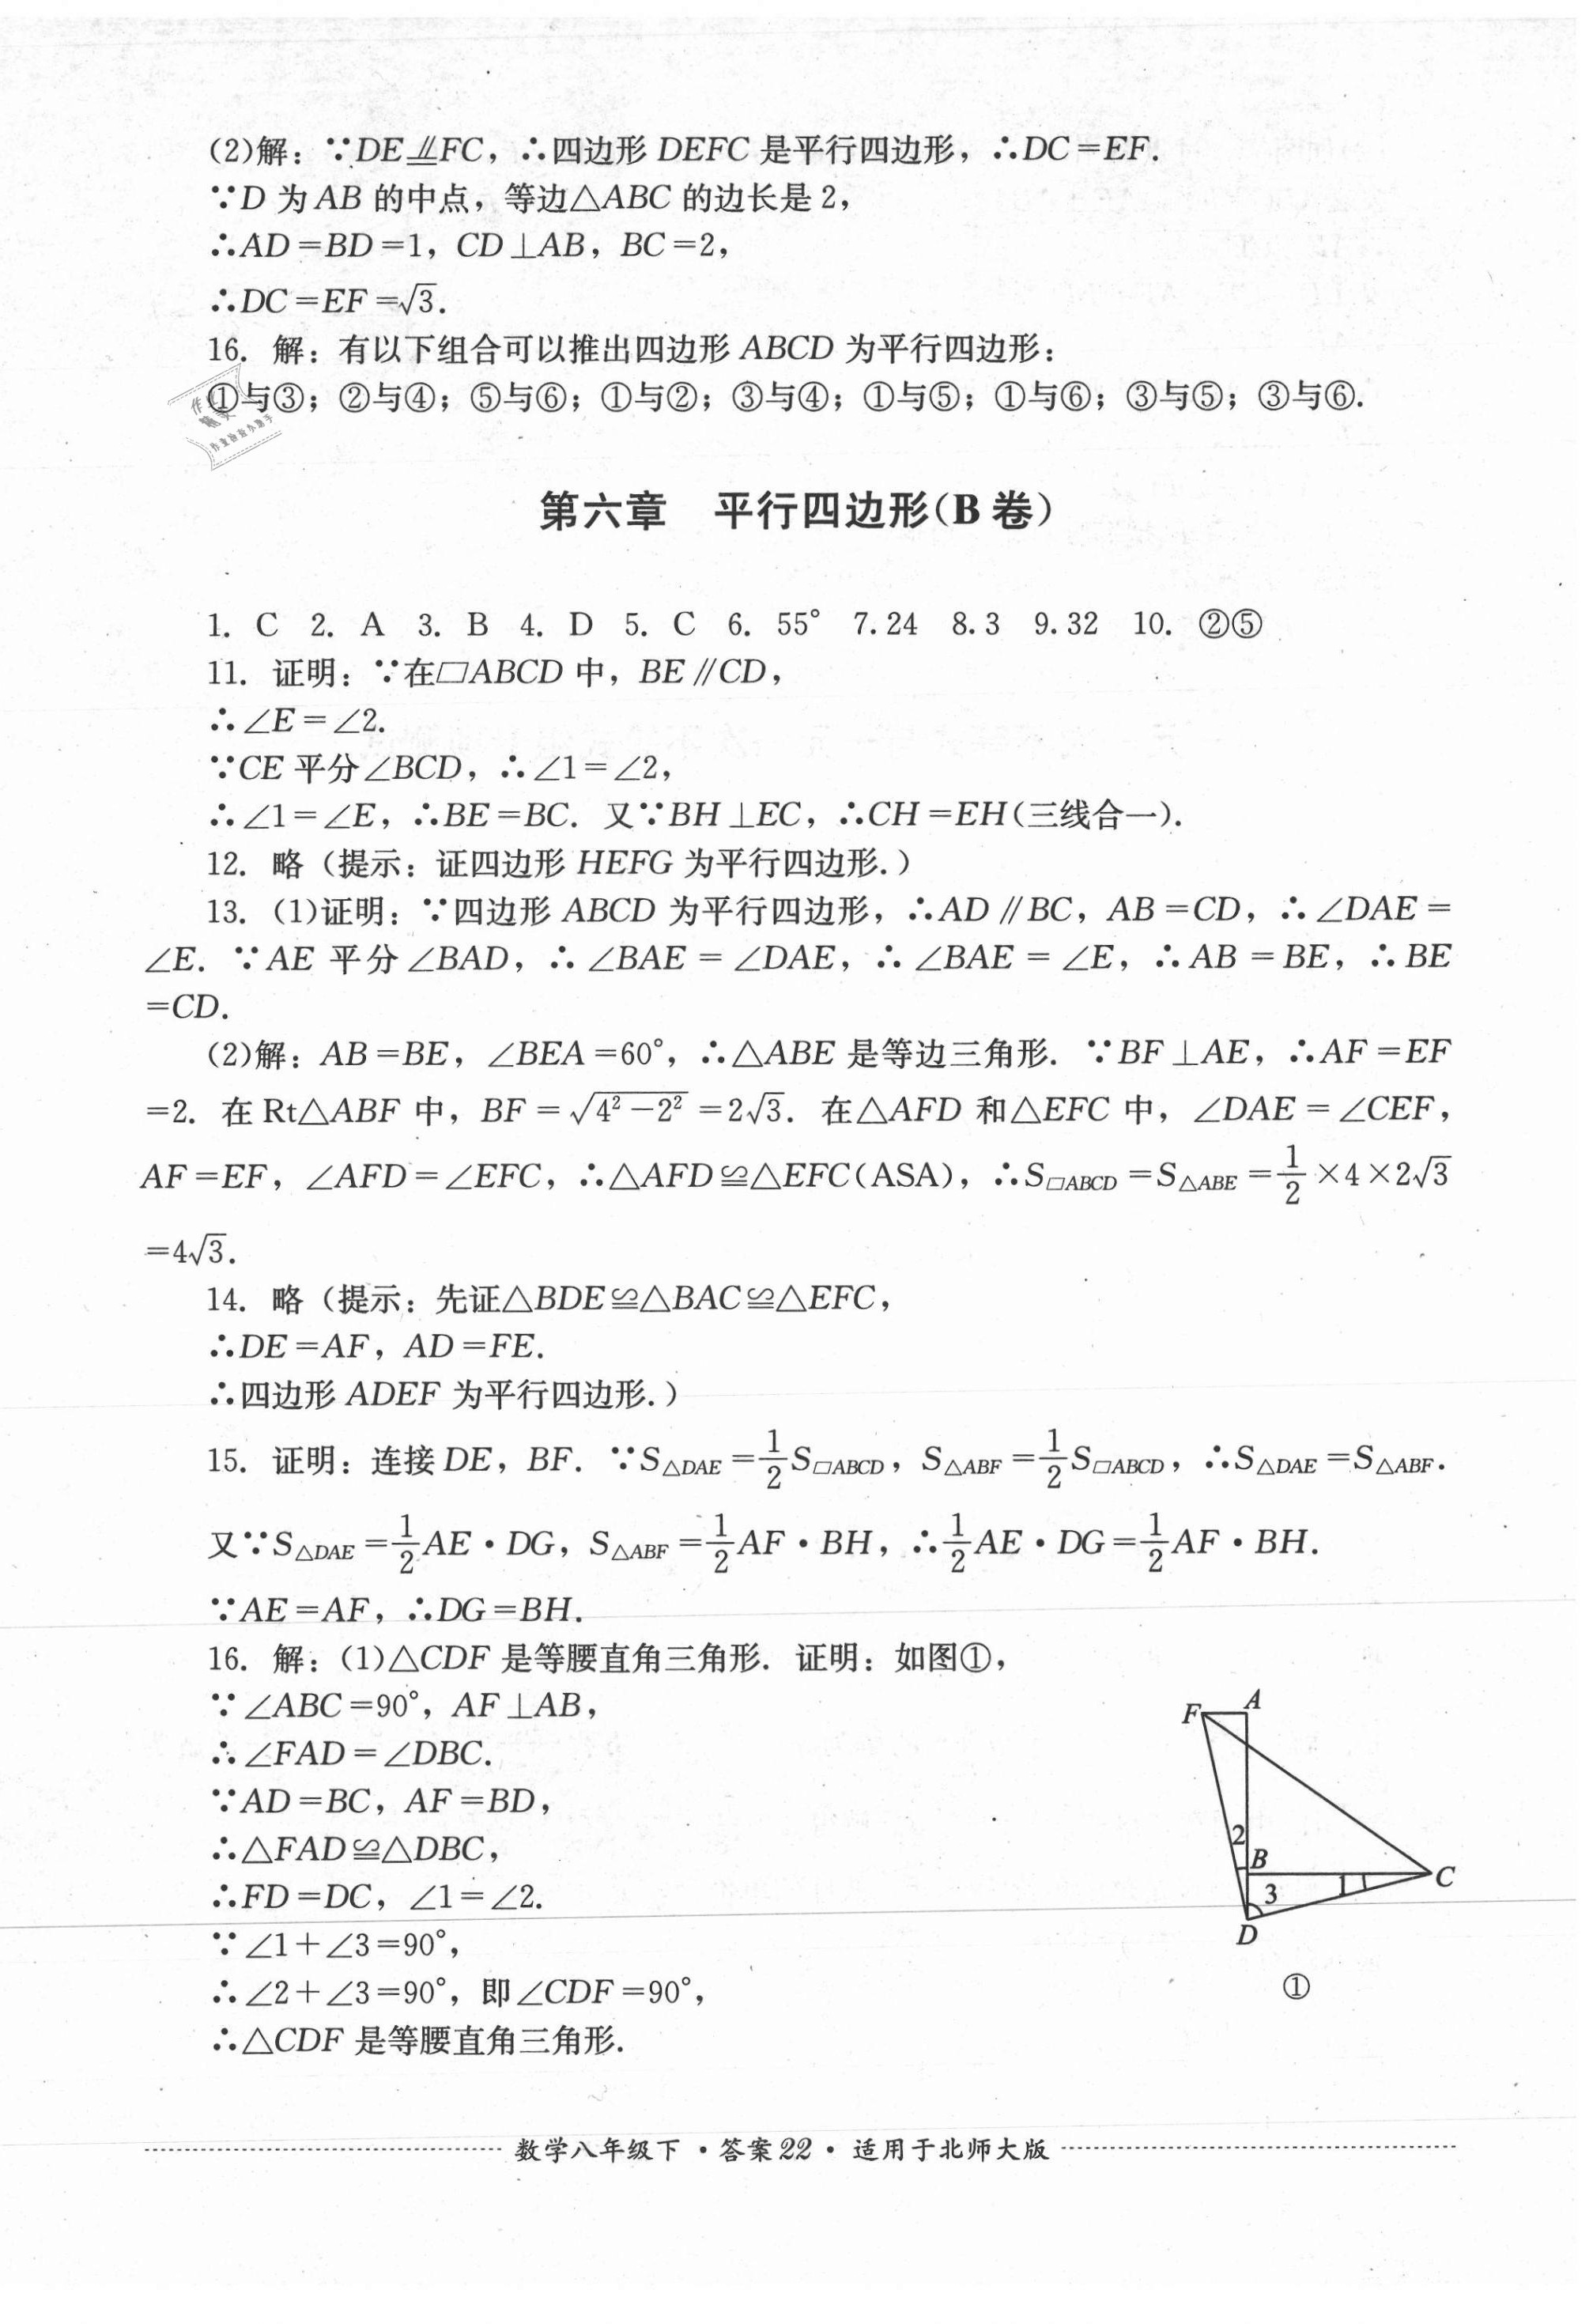 (2)解：∵DE⫽FC，∴四边形 DEFC 是平行四边形，∴DC=EF.
∵D 为 AB 的中点，等边△ABC 的边长是 2，
∴AD=BD=1，CD⊥AB，BC=2，
∴DC=EF=√3.
16. 解：有以下组合可以推出四边形 ABCD 为平行四边形：
①与③；②与④；⑤与⑥；①与②；③与④；①与⑤；①与⑥；③与⑤；③与⑥.
第六章 平行四边形(B 卷)
1. C 2. A 3. B 4. D 5. C 6. 55° 7. 24 8. 3 9. 32 10. ②⑤
11. 证明：∵在▱ABCD 中，BE∥CD，
∴∠E=∠2.
∵CE 平分∠BCD，∴∠1=∠2，
∴∠1=∠E，∴BE=BC. 又∵BH⊥EC，∴CH=EH(三线合一).
12. 略（提示：证四边形 HEFG 为平行四边形.）
13. (1)证明：∵四边形 ABCD 为平行四边形，∴AD∥BC，AB=CD，∴∠DAE=
∠E. ∵AE 平分∠BAD，∴∠BAE=∠DAE，∴∠BAE=∠E，∴AB=BE，∴BE
=CD.
(2)解：AB=BE，∠BEA=60°，∴△ABE 是等边三角形. ∵BF⊥AE，∴AF=EF
=2. 在 Rt△ABF 中，BF=√(4²-2²)=2√3. 在△AFD 和△EFC 中，∠DAE=∠CEF，
AF=EF，∠AFD=∠EFC，∴△AFD≌△EFC(ASA)，∴S▱ABCD=S△ABE=1/2×4×2√3
=4√3.
14. 略（提示：先证△BDE≌△BAC≌△EFC，
∴DE=AF，AD=FE.
∴四边形 ADEF 为平行四边形.）
15. 证明：连接 DE，BF. ∵S△DAE=1/2S▱ABCD，S△ABF=1/2S▱ABCD，∴S△DAE=S△ABF.
又∵S△DAE=1/2AE·DG，S△ABF=1/2AF·BH，∴1/2AE·DG=1/2AF·BH.
∵AE=AF，∴DG=BH.
16. 解：(1)△CDF 是等腰直角三角形. 证明：如图①，
∵∠ABC=90°，AF⊥AB，
∴∠FAD=∠DBC.
∵AD=BC，AF=BD，
∴△FAD≌△DBC，
∴FD=DC，∠1=∠2.
∵∠1+∠3=90°，
∴∠2+∠3=90°，即∠CDF=90°，
∴△CDF 是等腰直角三角形.
F A
2
B
C
3 1
D
①
数学八年级下·答案22·适用于北师大版